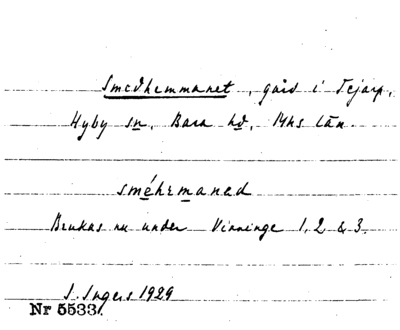 Smedhemmanet, gård i Tejarp,
Hyby sn, Bara hd, Mhs län.
sméhemaned
Brukas nu under Vinninge 1, 2 & 3.
I. Ingers 1929
Nr 5533.